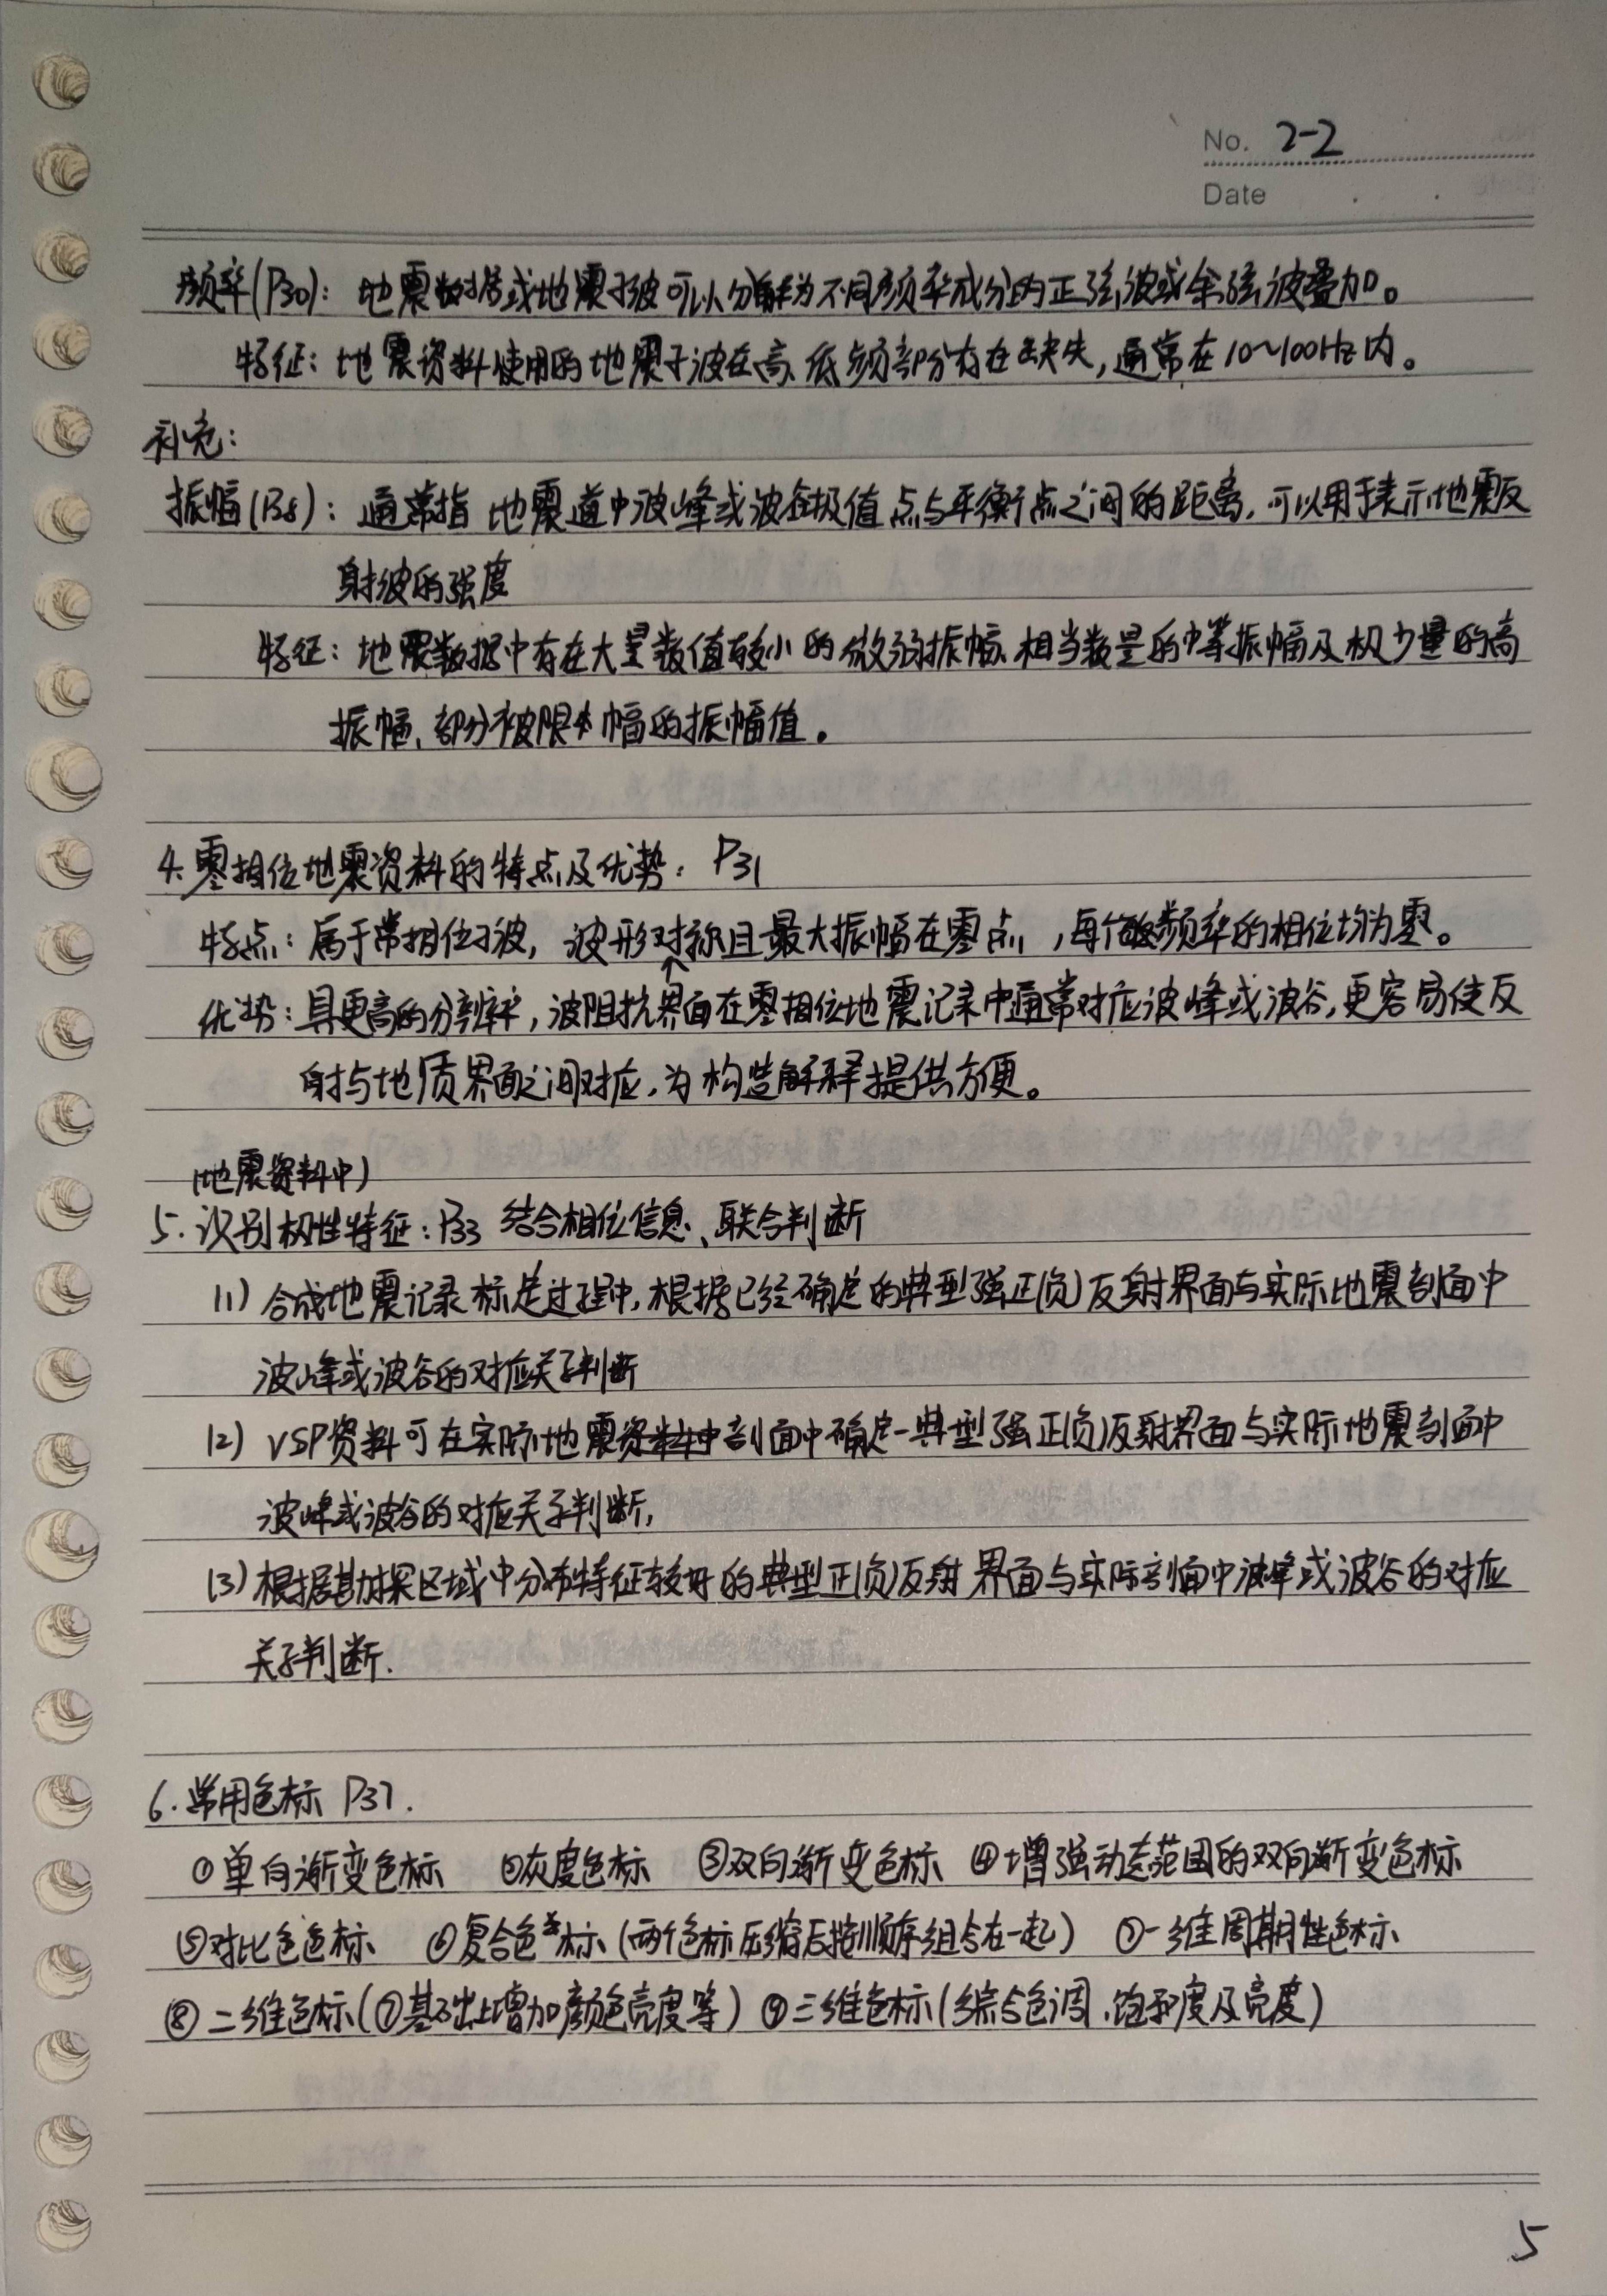 No. 2-2
Date
频率(P30)：地震数据或地震子波可以分解为不同频率成分的正弦波或余弦波叠加。
特征：地震资料使用的地震子波在高、低频部分存在缺失，通常在10~100Hz内。
补充：
振幅(P28)：通常指地震道中波峰或波谷极值点与平衡点之间的距离，可以用于表示地震反
射波的强度
特征：地震数据中存在大量数值较小的微弱振幅、相当数量的中等振幅及极少量的高
振幅、部分被限幅的振幅值。
4.零相位地震资料的特点及优势：P31
特点：属于常相位子波，波形对称且最大振幅在零点，每个频率的相位均为零。
优势：具更高的分辨率，波阻抗界面在零相位地震记录中通常对应波峰或波谷，更容易使反
射与地质界面之间对应，为构造解释提供方便。
(地震资料中)
5.识别极性特征：P33 结合相位信息、联合判断
(1) 合成地震记录标定过程中，根据已经确定的典型强正(负)反射界面与实际地震剖面中
波峰或波谷的对应关系判断
(2) VSP资料可在实际地震剖面中确定一典型强正(负)反射界面与实际地震剖面中
波峰或波谷的对应关系判断，
(3) 根据勘探区域中分布特征较好的典型正(负)反射界面与实际剖面中波峰或波谷的对应
关系判断.
6.常用色标 P37.
①单向渐变色标 ②灰度色标 ③双向渐变色标 ④增强动态范围的双向渐变色标
⑤对比色色标 ⑥复合色标(两个色标压缩后按顺序组合在一起) ⑦一维周期性色标
⑧二维色标(⑦基础上增加颜色亮度等) ⑨三维色标(综合色调、饱和度及亮度)
5